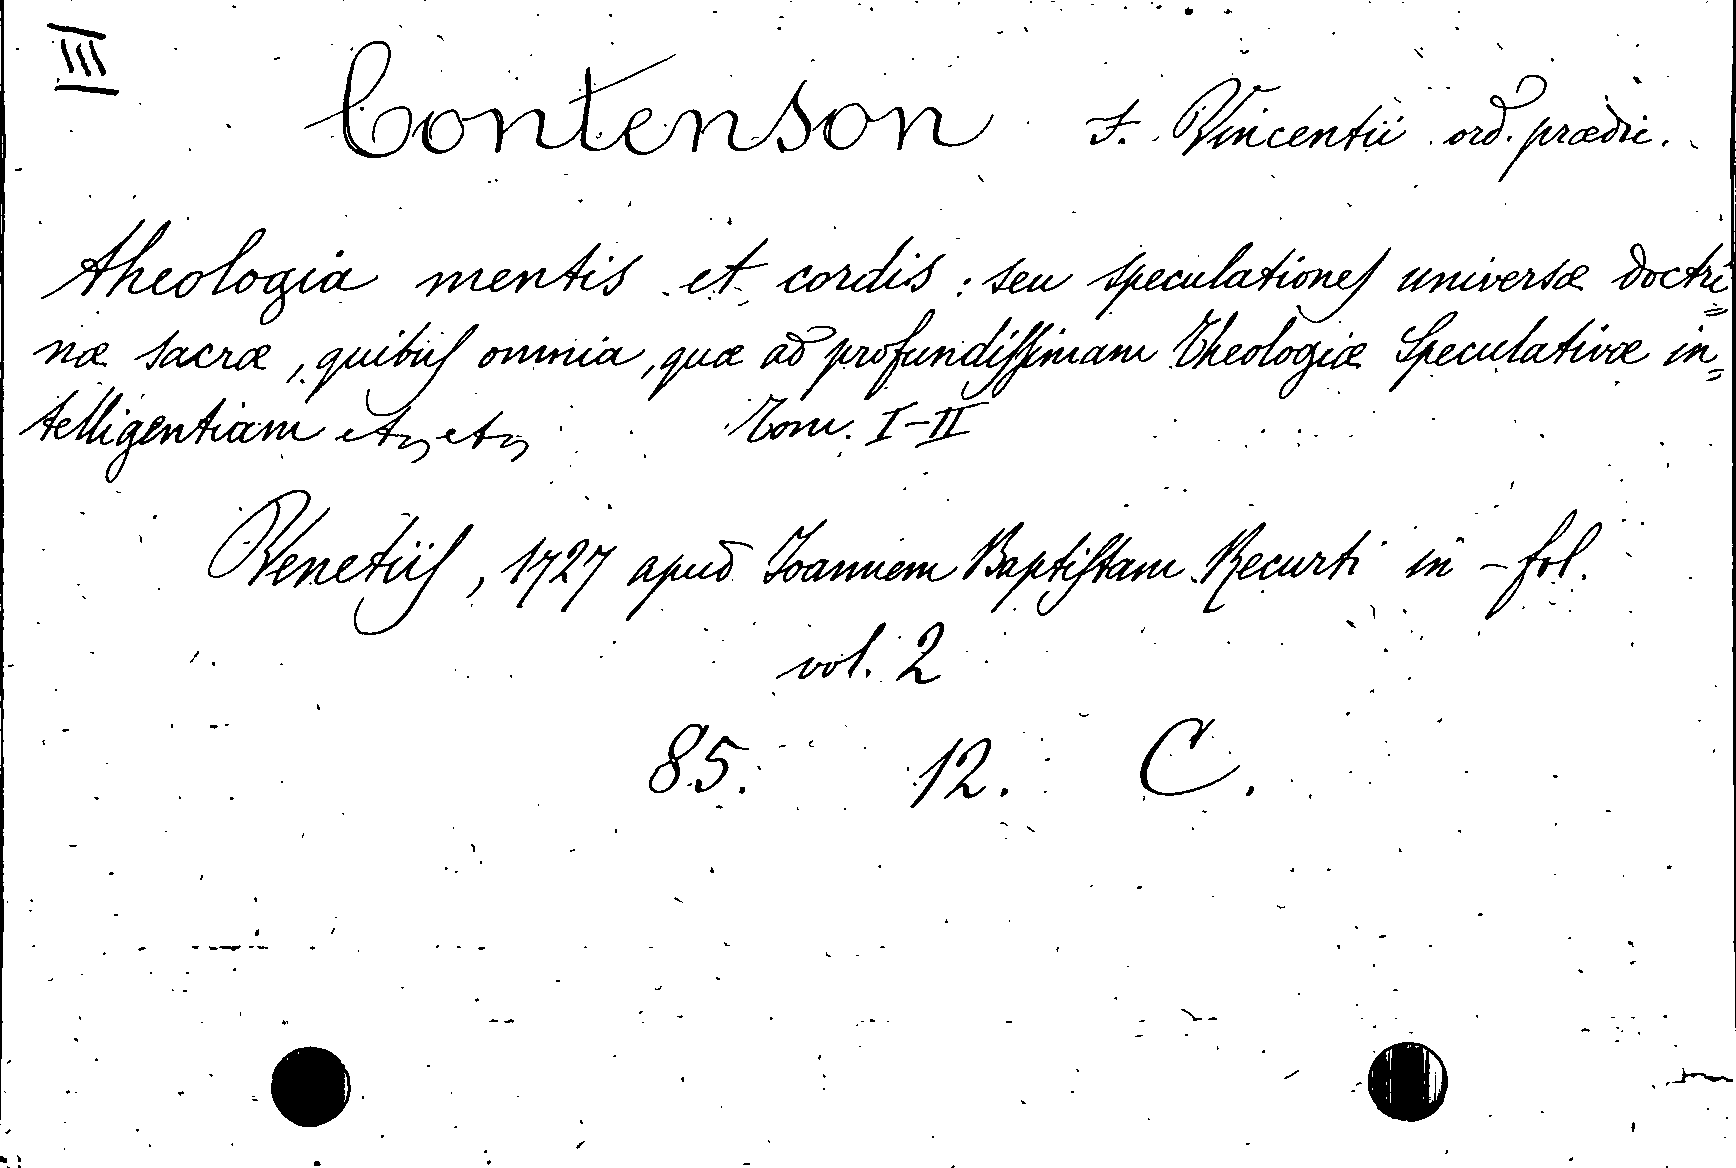 III
Contenson F. Vincentii ord. prædic.
theologia mentis et cordis : seu speculationes universæ doctri=
næ sacræ, quibus omnia, quæ ad profundissimam Theologiæ Speculativæ in=
telligentiam etc, etc, Tom. I-II
Venetiis, 1727 apud Joannem Baptistam Recurti in - fol.
vol. 2
85. 12. C.